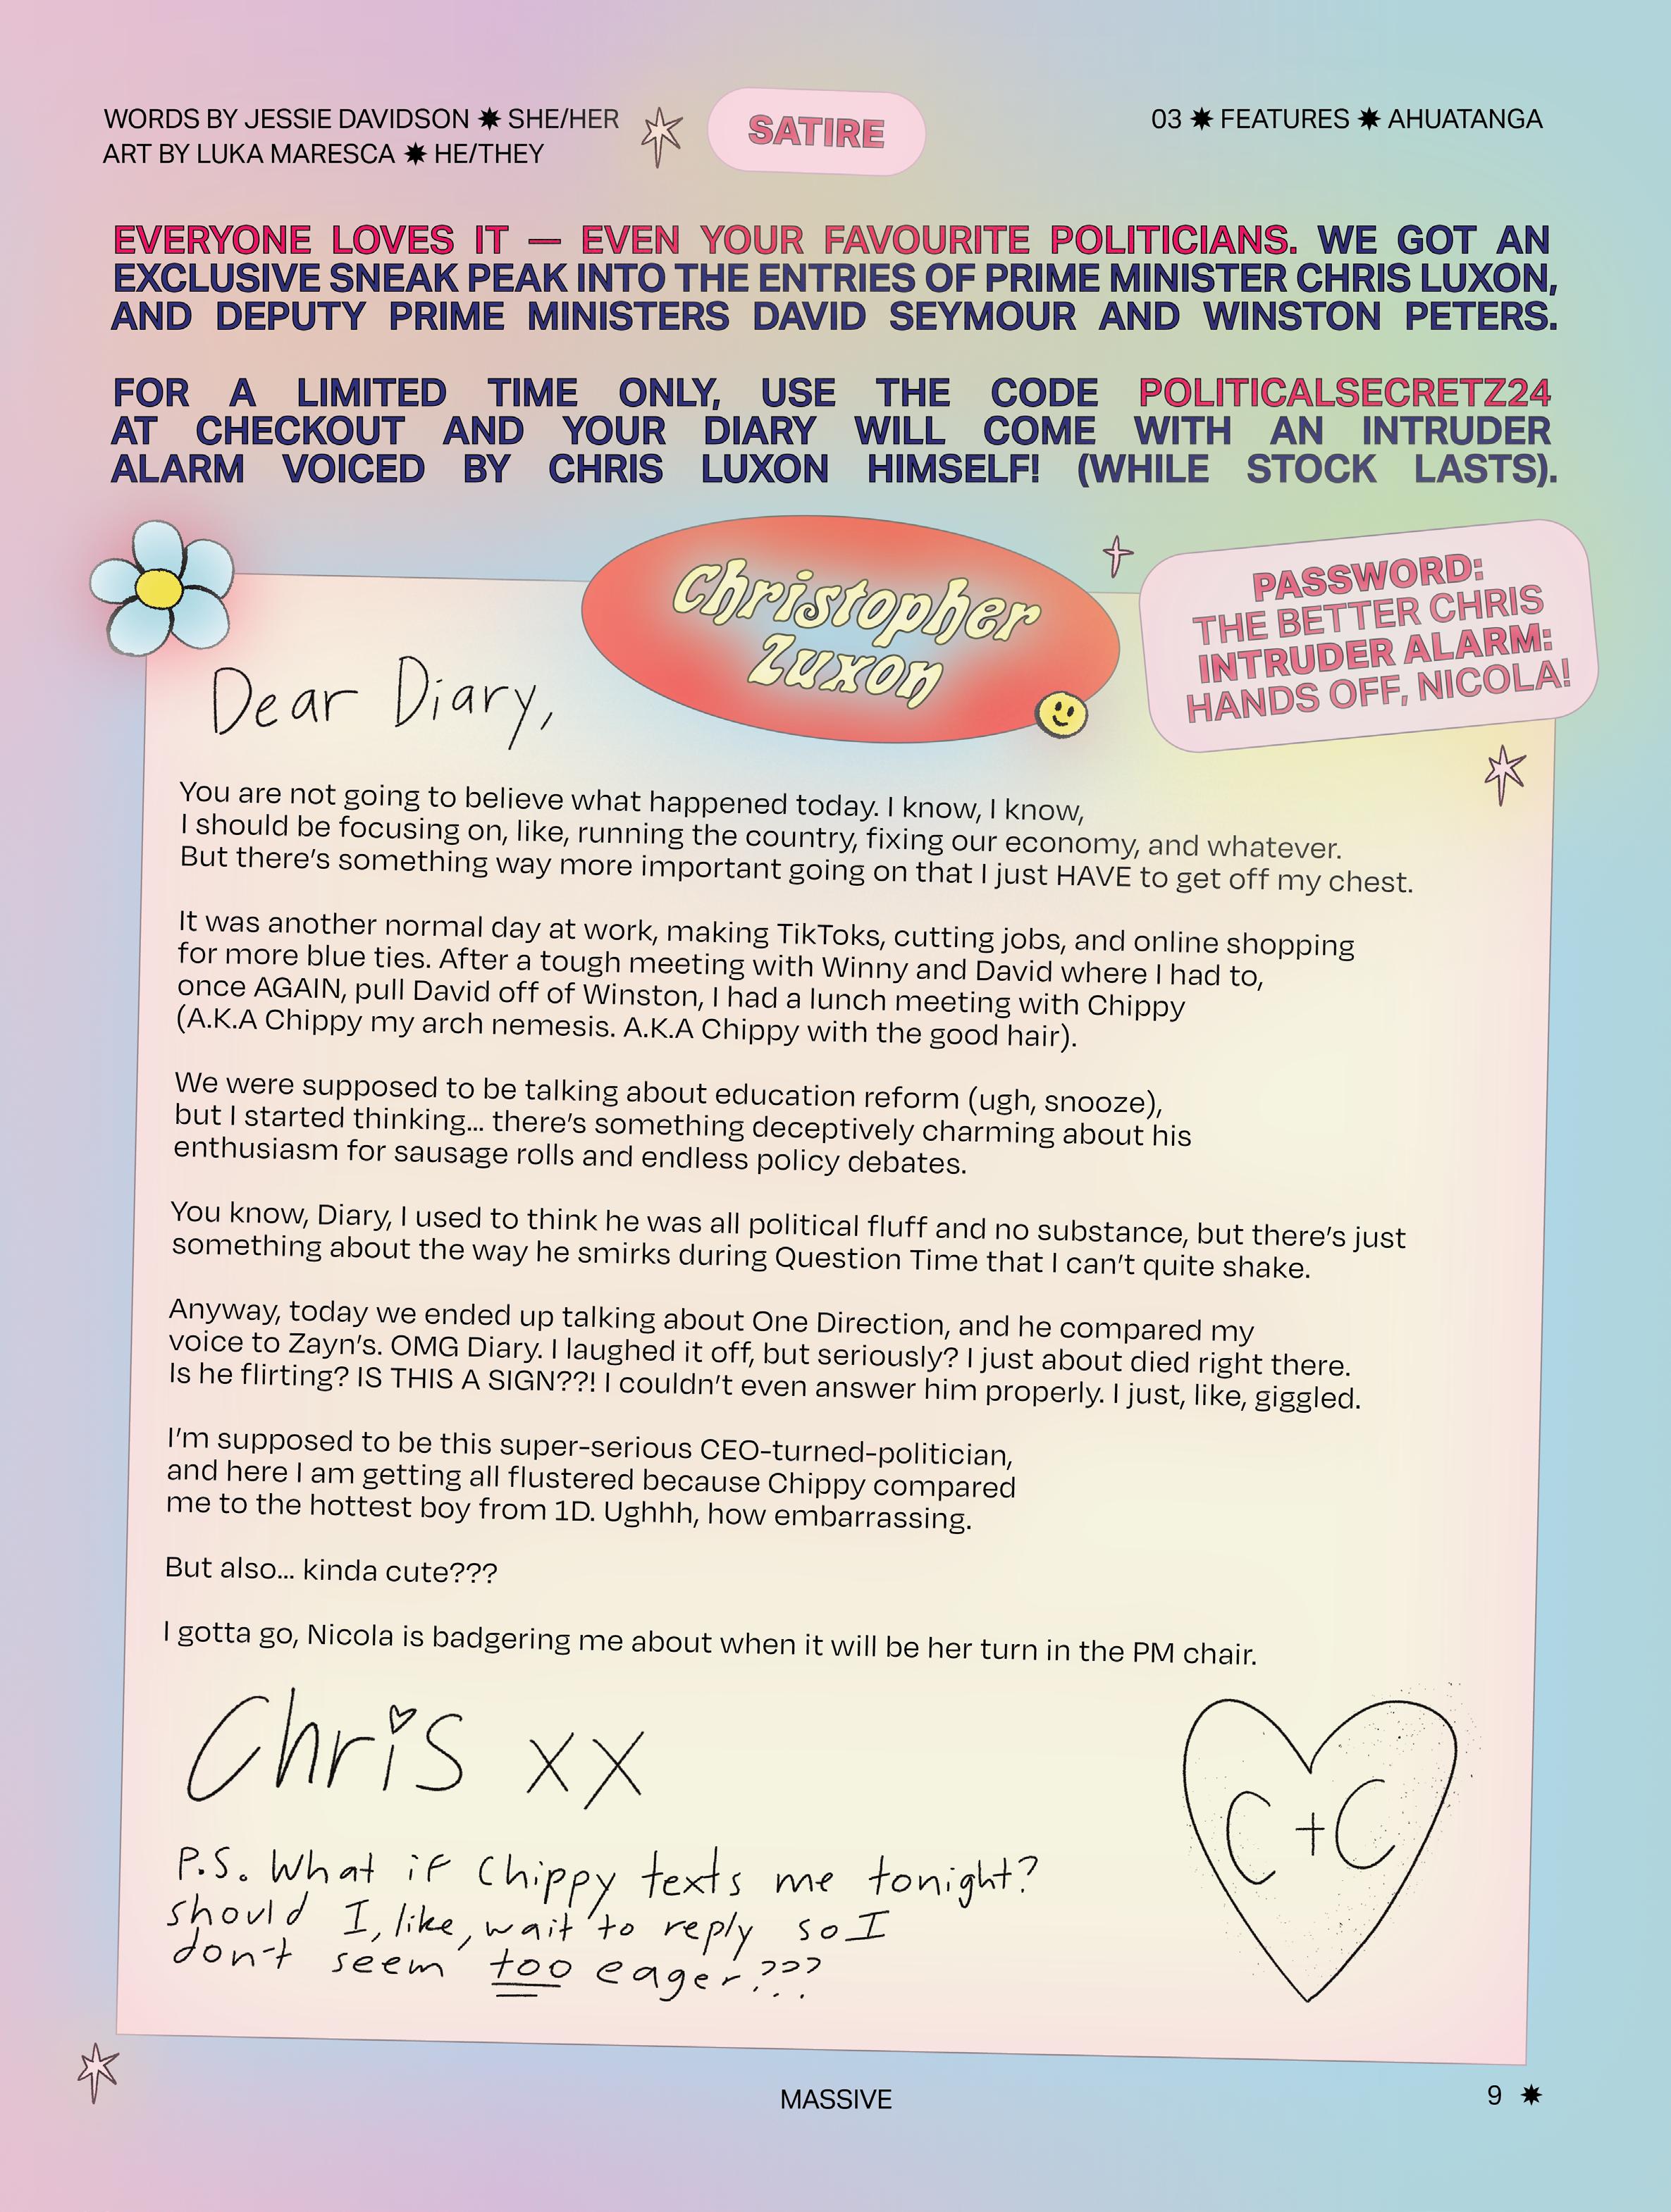 WORDS BY JESSIE DAVIDSON ✸ SHE/HER
ART BY LUKA MARESCA ✸ HE/THEY
SATIRE
03 ✸ FEATURES ✸ AHUATANGA
EVERYONE LOVES IT — EVEN YOUR FAVOURITE POLITICIANS. WE GOT AN
EXCLUSIVE SNEAK PEAK INTO THE ENTRIES OF PRIME MINISTER CHRIS LUXON,
AND DEPUTY PRIME MINISTERS DAVID SEYMOUR AND WINSTON PETERS.
FOR A LIMITED TIME ONLY, USE THE CODE POLITICALSECRETZ24
AT CHECKOUT AND YOUR DIARY WILL COME WITH AN INTRUDER
ALARM VOICED BY CHRIS LUXON HIMSELF! (WHILE STOCK LASTS).
Christopher
Luxon
PASSWORD:
THE BETTER CHRIS
INTRUDER ALARM:
HANDS OFF, NICOLA!
Dear Diary,
You are not going to believe what happened today. I know, I know,
I should be focusing on, like, running the country, fixing our economy, and whatever.
But there's something way more important going on that I just HAVE to get off my chest.
It was another normal day at work, making TikToks, cutting jobs, and online shopping
for more blue ties. After a tough meeting with Winny and David where I had to,
once AGAIN, pull David off of Winston, I had a lunch meeting with Chippy
(A.K.A Chippy my arch nemesis. A.K.A Chippy with the good hair).
We were supposed to be talking about education reform (ugh, snooze),
but I started thinking... there's something deceptively charming about his
enthusiasm for sausage rolls and endless policy debates.
You know, Diary, I used to think he was all political fluff and no substance, but there's just
something about the way he smirks during Question Time that I can't quite shake.
Anyway, today we ended up talking about One Direction, and he compared my
voice to Zayn's. OMG Diary. I laughed it off, but seriously? I just about died right there.
Is he flirting? IS THIS A SIGN??! I couldn't even answer him properly. I just, like, giggled.
I'm supposed to be this super-serious CEO-turned-politician,
and here I am getting all flustered because Chippy compared
me to the hottest boy from 1D. Ughhh, how embarrassing.
But also... kinda cute???
I gotta go, Nicola is badgering me about when it will be her turn in the PM chair.
Chris xx
C+C
P.S. What if Chippy texts me tonight?
should I, like, wait to reply so I
don't seem too eager???
MASSIVE
9 ✸